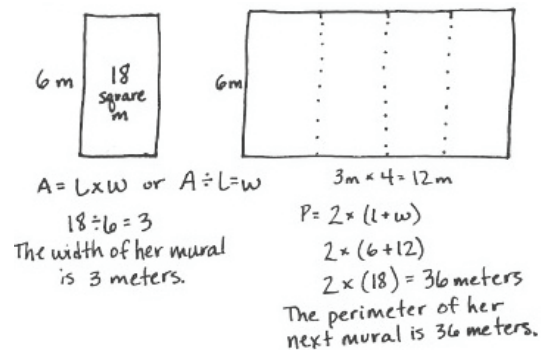 6 m
18
square
m
A = L x W or A ÷ L = W
18 ÷ 6 = 3
The width of her mural
is 3 meters.
6m
3m × 4 = 12m
P = 2 × (l + w)
2 × (6 + 12)
2 × (18) = 36 meters
The perimeter of her
next mural is 36 meters.